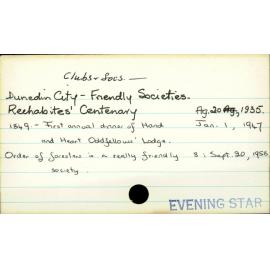 Clubs & Socs. —
Dunedin City - Friendly Societies.
Rechabites' Centenary Ag. 20, 1935.
1849. - First annual dinner of Hand Jan. 1, 1947
and Heart Oddfellows' Lodge.
Order of foresters is a really friendly 8: Sept. 20, 1956
society.
EVENING STAR